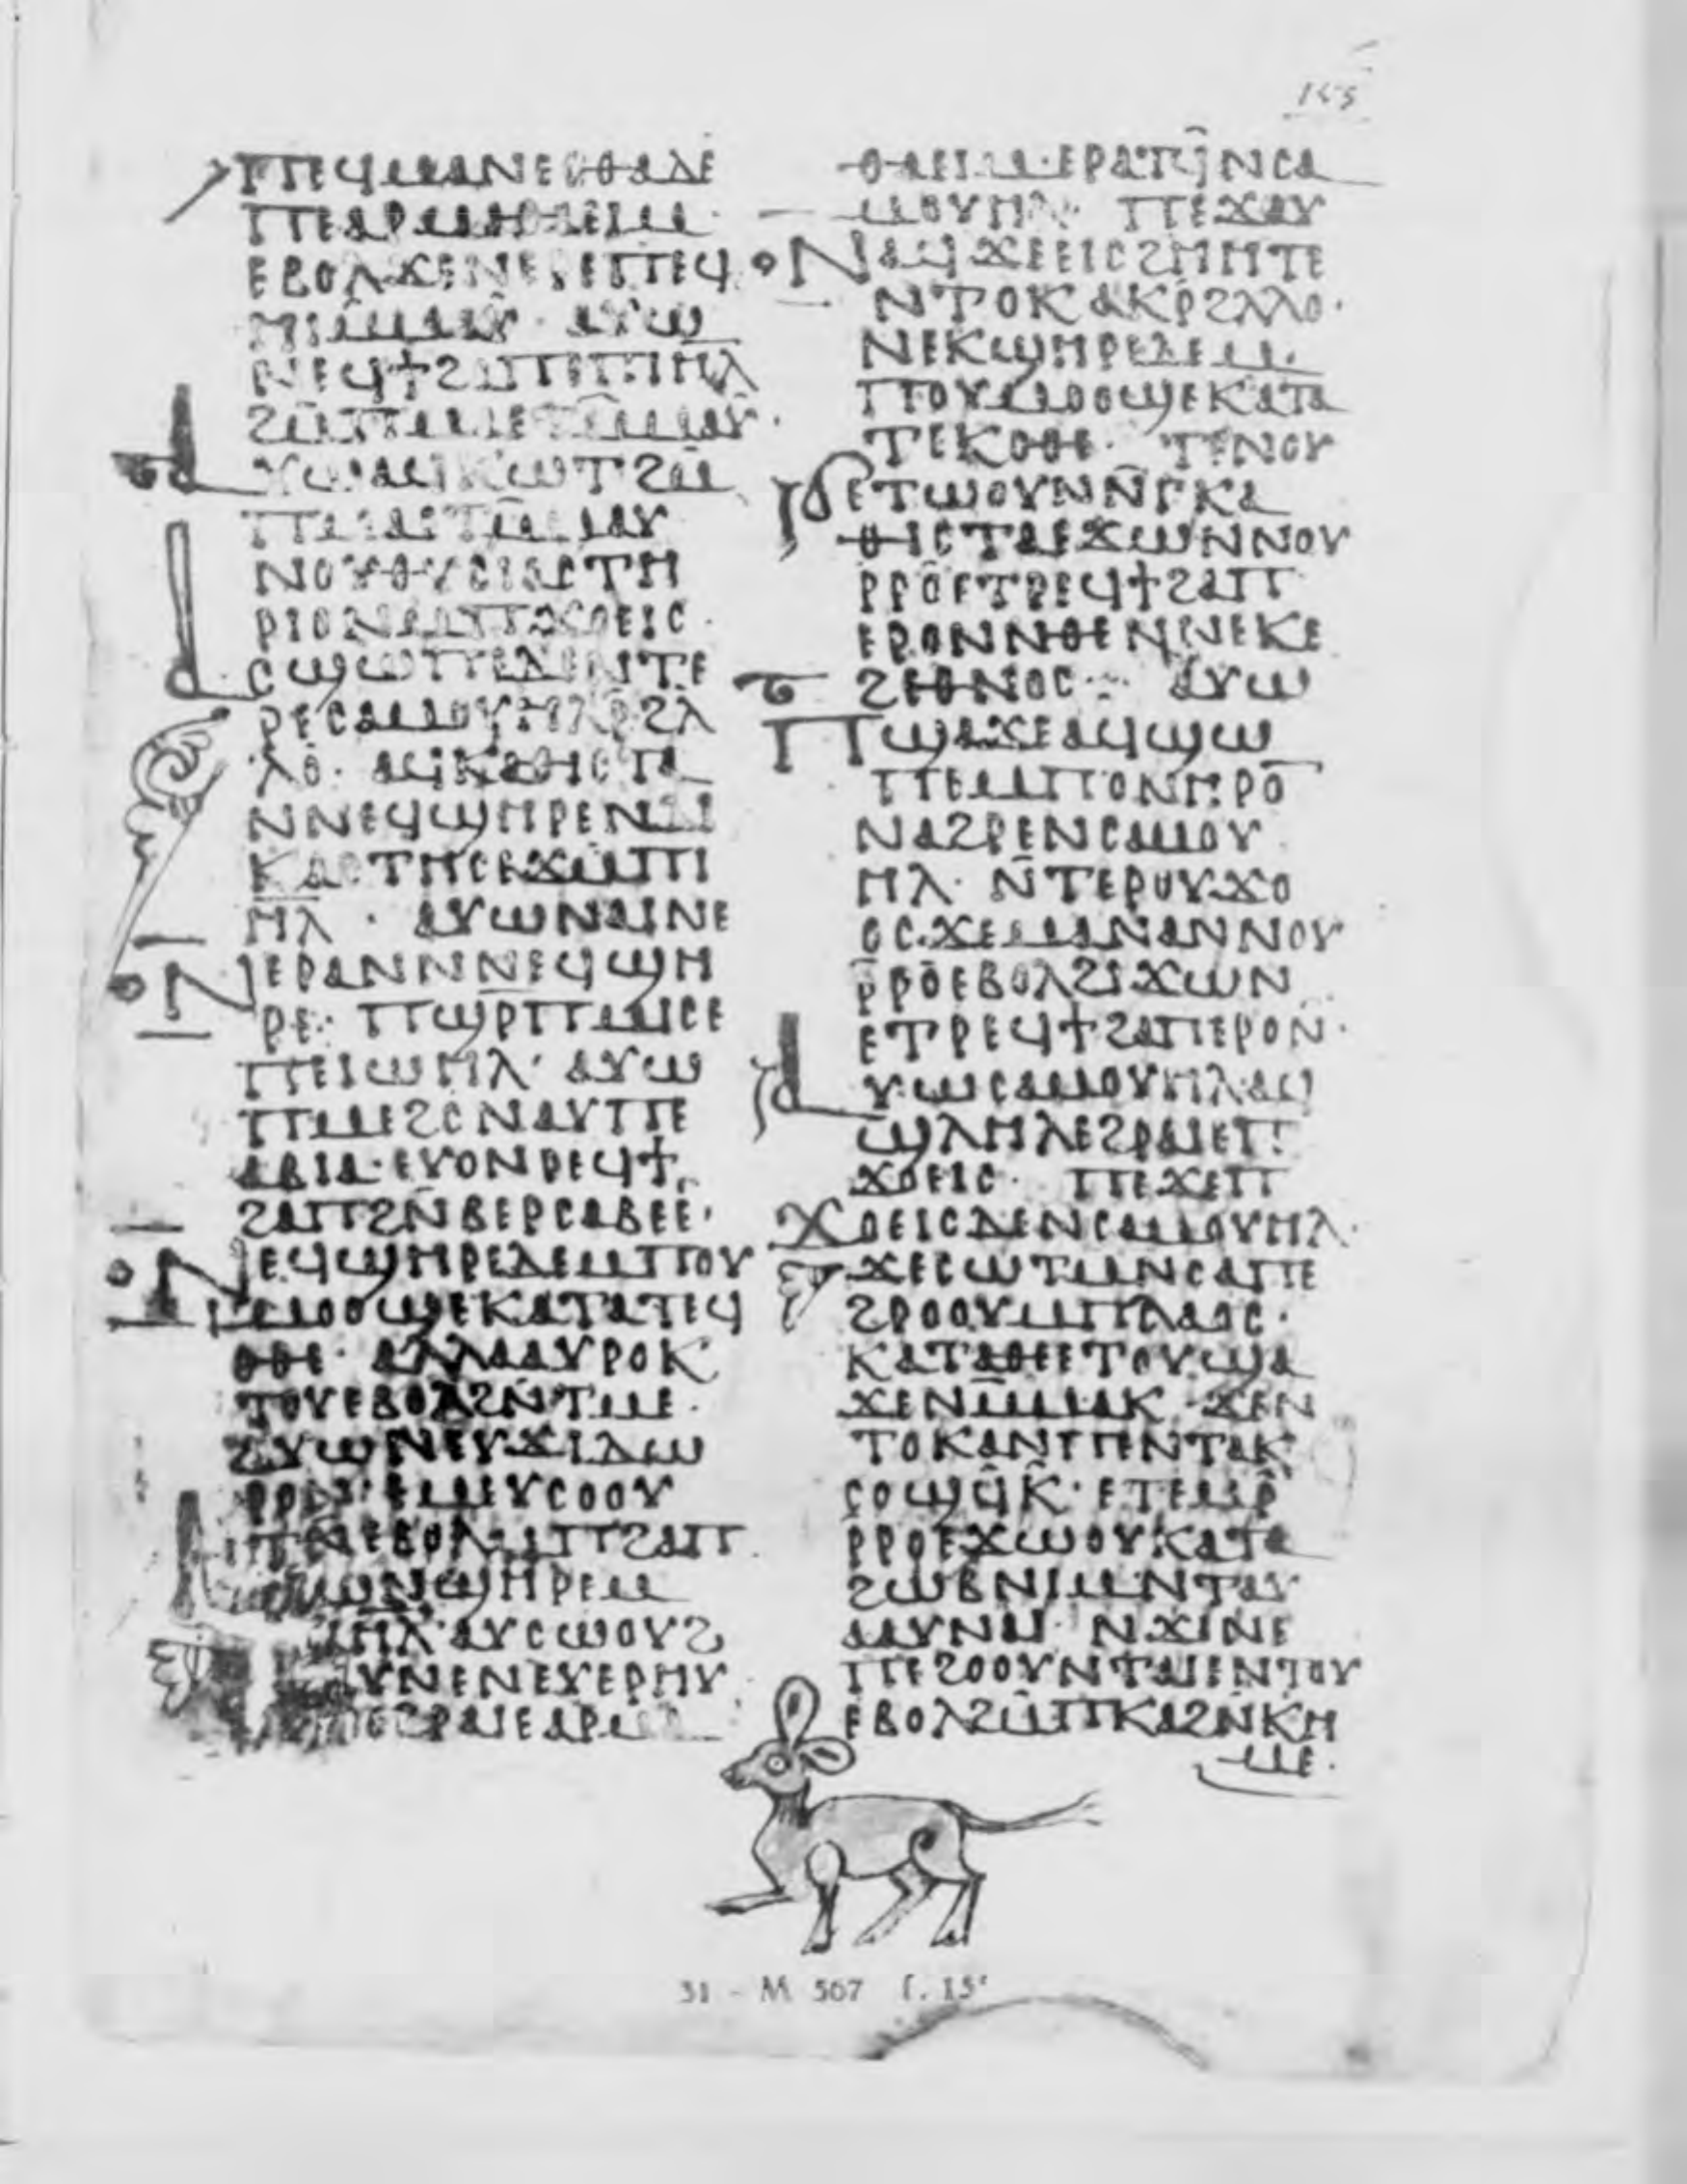 ⲡⲉϥⲙⲁⲛⲉ ⲇⲉ
ⲡⲉⲁⲣⲙⲁⲑⲁⲉⲓⲙ·
ⲉⲃⲟⲗϫⲉⲛⲉⲣⲉⲡⲉϥ
ⲏⲓⲙⲙⲁⲩ· ⲁⲩⲱ
ⲛⲉϥϯϩⲁⲡⲉⲡⲓⲏⲗ
ϩⲙⲡⲙⲁⲉⲧⲙⲙⲁⲩ·
ⲁⲩⲱⲁϥⲕⲱⲧϩⲙ
ⲡⲙⲁⲉⲧⲙⲙⲁⲩ
ⲛⲟⲩⲑⲩⲥⲓⲁⲥⲧⲏ
ⲣⲓⲟⲛⲙⲡϫⲟⲉⲓⲥ·
ⲁⲥϣⲱⲡⲉⲇⲉⲛⲧⲉ
ⲣⲉⲥⲁⲙⲟⲩⲏⲗⲣϩⲗ
ⲗⲟ· ⲁϥⲕⲁⲑⲓⲥⲧⲁ
ⲛⲛⲉϥϣⲏⲣⲉⲛⲇⲓ
ⲕⲁⲥⲧⲏⲥⲉϫⲙⲡⲓ
ⲏⲗ· ⲁⲩⲱⲛⲁⲓⲛⲉ
ⲛⲉⲣⲁⲛⲛⲛⲉϥϣⲏ
ⲣⲉ· ⲡϣⲣⲡⲙⲙⲓⲥⲉ
ⲡⲉⲓⲱⲏⲗ· ⲁⲩⲱ
ⲡⲙⲉϩⲥⲛⲁⲩⲡⲉ
ⲁⲃⲓⲁ·ⲉⲩⲟⲛⲣⲉϥϯ
ϩⲁⲡϩⲛⲃⲉⲣⲥⲁⲃⲉⲉ·
ⲛⲉϥϣⲏⲣⲉⲇⲉⲙⲡⲟⲩ
ⲙⲟⲟϣⲉⲕⲁⲧⲁⲧⲉϥ
ϩⲓⲏ· ⲁⲗⲗⲁⲁⲩⲣⲟⲕ
ⲧⲟⲩⲉⲃⲟⲗϩⲛⲧⲙⲉ·
ⲁⲩⲱⲛⲉⲩϫⲓⲇⲱ
ⲣⲟⲛ· ⲉⲙⲉⲩⲥⲟⲟⲩ
ⲧⲛⲉⲃⲟⲗⲙⲡϩⲁⲡ·
ⲛϣⲏⲣⲉⲙ
ⲡⲓⲏⲗ ⲁⲩⲥⲱⲟⲩϩ
ⲉϩⲟⲩⲛⲉⲛⲉⲩⲉⲣⲏⲩ
ⲉϩⲣⲁⲓⲉⲁⲣⲙⲁ
ⲑⲁⲉⲓⲙ·ⲉⲣⲁⲧϥⲛⲥⲁ
ⲙⲟⲩⲏⲗ· ⲡⲉϫⲁⲩ
ⲛⲁϥϫⲉⲉⲓⲥϩⲏⲏⲧⲉ
ⲛⲧⲟⲕⲁⲕⲣϩⲗⲗⲟ·
ⲛⲉⲕϣⲏⲣⲉⲇⲉⲙ
ⲡⲟⲩⲙⲟⲟϣⲉⲕⲁⲧⲁ
ⲧⲉⲕϩⲓⲏ· ⲧⲉⲛⲟⲩ
ϭⲉⲧⲱⲟⲩⲛⲛⲅⲕⲁ
ⲑⲓⲥⲧⲁⲉϫⲱⲛⲛⲟⲩ
ⲣⲣⲟⲉⲧⲣⲉϥϯϩⲁⲡ
ⲉⲣⲟⲛⲛⲑⲉⲛⲛⲉⲕⲉ
ϩⲉⲑⲛⲟⲥ· ⲁⲩⲱ
ⲡϣⲁϫⲉⲁϥϣⲱ
ⲡⲉⲙⲡⲟⲛⲏⲣⲟ
ⲛⲁϩⲣⲉⲛⲥⲁⲙⲟⲩ
ⲏⲗ· ⲛⲧⲉⲣⲟⲩϫⲟ
ⲟⲥ·ϫⲉⲙⲁⲛⲁⲛⲛⲟⲩ
ⲣⲣⲟⲉⲃⲟⲗϩⲓϫⲱⲛ
ⲉⲧⲣⲉϥϯϩⲁⲡⲉⲣⲟⲛ·
ⲁⲩⲱⲥⲁⲙⲟⲩⲏⲗⲁϥ
ϣⲗⲏⲗⲉϩⲣⲁⲓⲉⲡ
ϫⲟⲉⲓⲥ· ⲡⲉϫⲉⲡ
ϫⲟⲉⲓⲥⲇⲉⲛⲥⲁⲙⲟⲩⲏⲗ·
ϫⲉⲥⲱⲧⲙⲛⲥⲁⲡⲉ
ϩⲣⲟⲟⲩⲙⲡⲗⲁⲟⲥ·
ⲕⲁⲧⲁⲑⲉⲉⲧⲟⲩϣⲁ
ϫⲉⲛⲙⲙⲁⲕ· ϫⲉⲛ
ⲧⲟⲕⲁⲛⲡⲉⲛⲧⲁⲩ
ⲥⲟϣϥⲕ·ⲉⲧⲉⲙⲣ
ⲣⲣⲟⲉϫⲱⲟⲩⲕⲁⲧⲁ
ϩⲱⲃⲛⲓⲙⲛⲧⲁⲩ
ⲁⲁⲩⲛⲁⲓ ⲛϫⲓⲛⲉ
ⲡⲉϩⲟⲟⲩⲛⲧⲁⲓⲉⲛⲧⲟⲩ
ⲉⲃⲟⲗϩⲙⲡⲕⲁϩⲛⲕⲏ
ⲙⲉ·
31 - M 567 f. 15ʳ